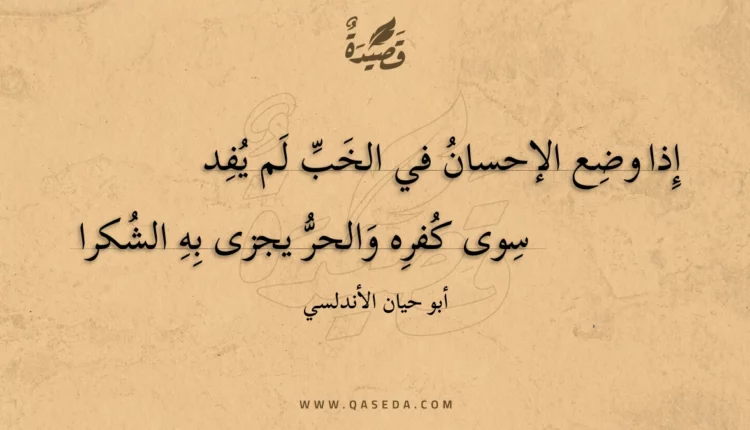 قَصِيدَةٌ
إِذا وضِع الإحسانُ في الخَبِّ لَم يُفِد
سِوى كُفرِه وَالحرُّ يجزى بِهِ الشُكرا
أبو حيان الأندلسي
WWW.QASEDA.COM